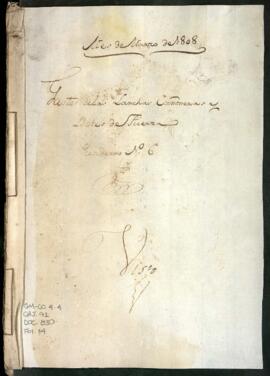 Mes de Marzo de 1808
Listas de las Lanchas Cañoneras y
Botes de Fuerza
Cuaderno N.º 6
Visto
GM-CO 4-4
CAJ. 91
DOC. 830
Fol. 14